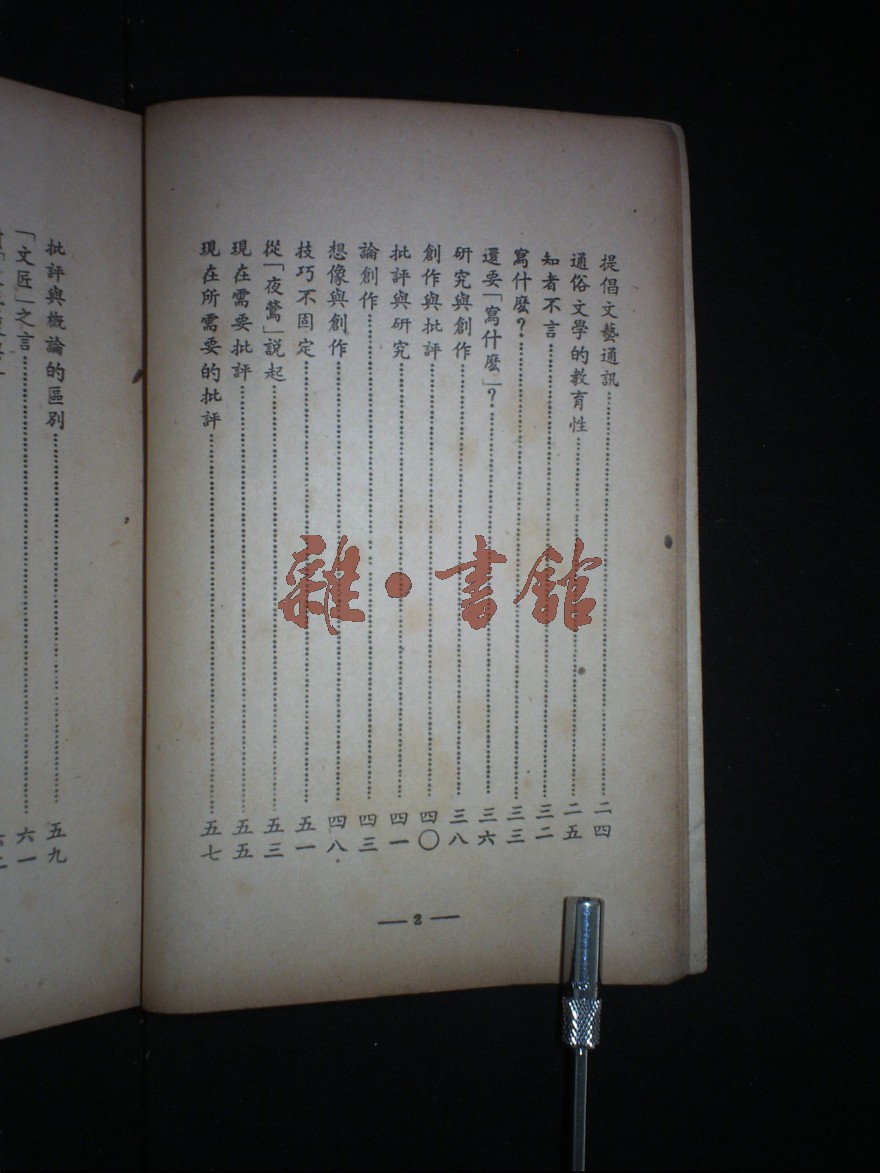 提倡文藝通訊……二四
通俗文學的教育性……二五
知者不言……三二
寫什麽？……三三
還要「寫什麽」？……三六
研究與創作……三八
創作與批評……四〇
批評與研究……四一
論創作……四三
想像與創作……四八
技巧不固定……五一
從「夜鶯」說起……五三
現在需要批評……五五
現在所需要的批評……五七
— 2 —
批評與概論的區別……五九
「文匠」之言……六一
雜·書館